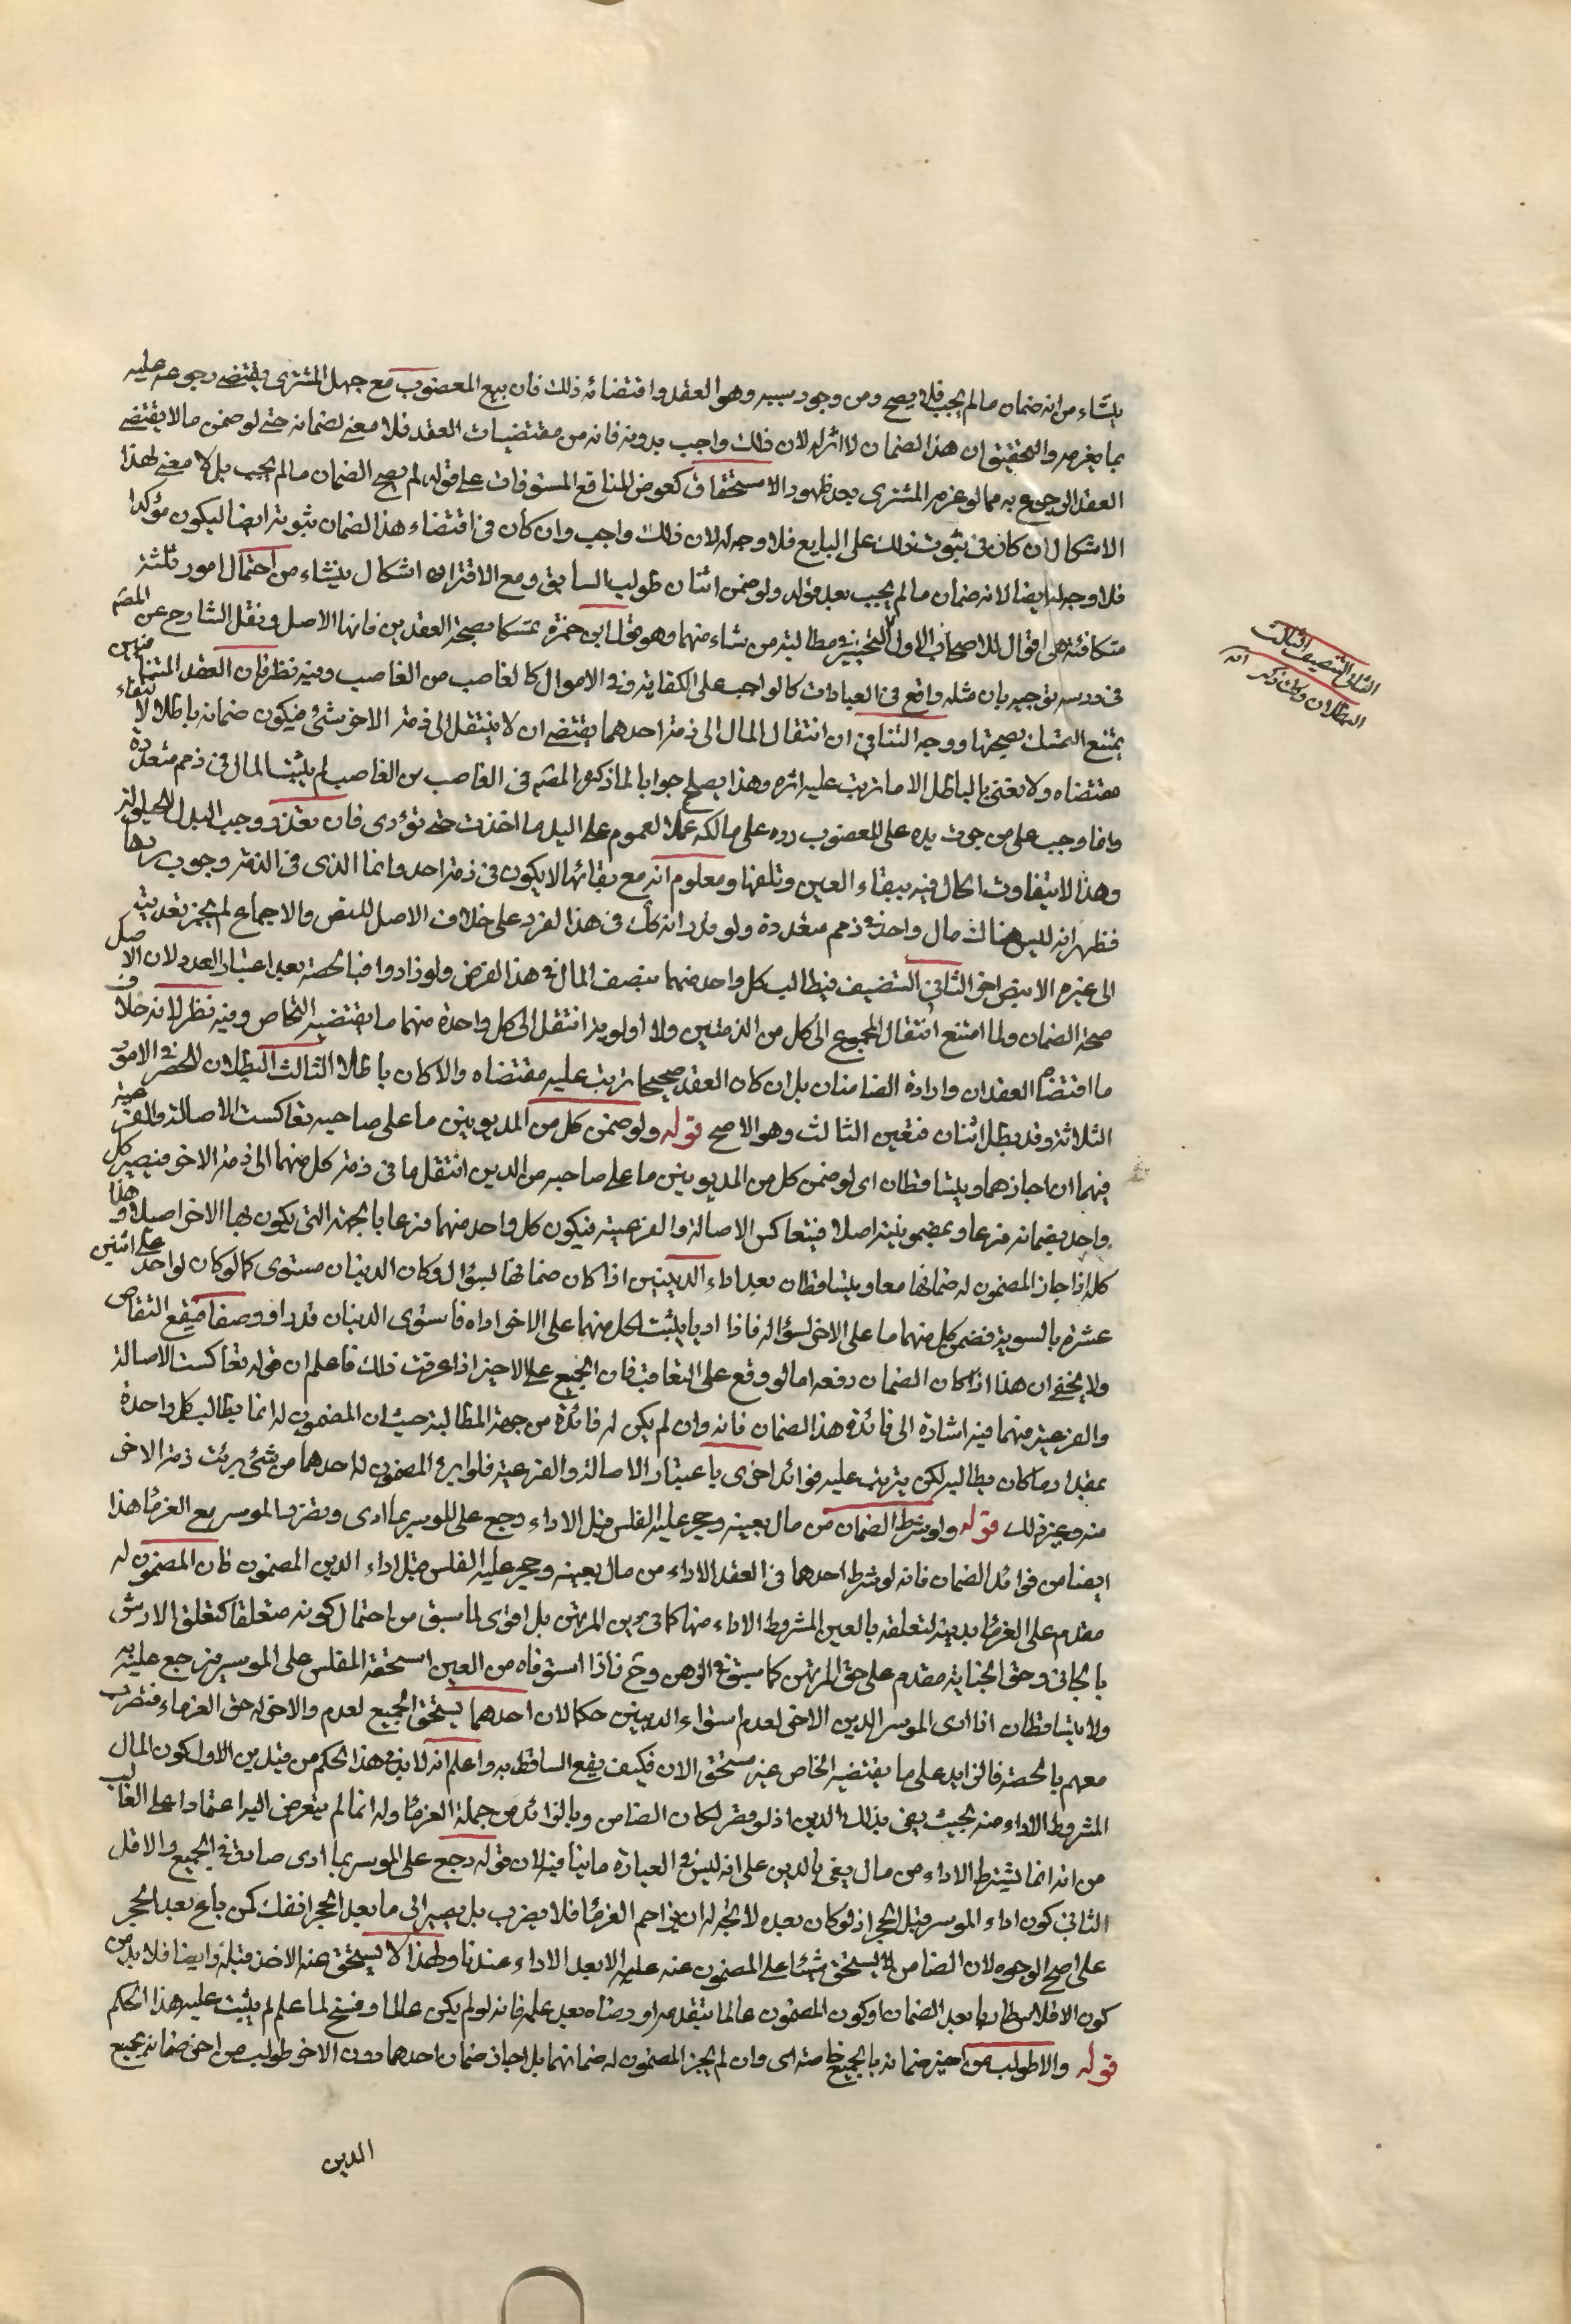 ينشاء من انه ضمان مالم يجب فلا يصح ومن وجود سببه وهو العقد واقتضائه ذلك فان بيع المغصوب مع جهل المشترى يقتضى رجوعه عليه
بما يغرمه والتحقيق ان هذا الضمان لا اثر له لان ذلك واجب بدونه فانه من مقتضيات العقد فلا معنى لضمانه حتى لو ضمن مالا يقتضى
العقد الرجوع به مما لو غرمه المشترى بعد ظهور الاستحقاق كعوض المنافع المستوفاة على قوله لم يصح الضمان مالم يجب بل لا معنى لهذا
الاشكال ان كان فى ثبوت ذلك على البايع فلا وجه له لان ذلك واجب وان كان فى اقتضاء هذا الضمان ثبوته ايضا ليكون مؤكدا
فلا وجه له ايضا لانه ضمان مالم يجب بعد قوله ولو ضمن اثنان طولب السابق ومع الاقتران اشكال ينشاء من احتمال امور ثلثة
متكافئة هى اقوال للاصحاب الاول التخيير فى مطالبة من شاء منهما وهو قول ابن حمزة تمسكا بصحة العقدين فانها الاصل ونقل الشارح عن المصم
فى درسه توجيهه بان مثله واقع فى العبادات كالواجب على الكفاية وفى الاموال كالغاصب من الغاصب وفيه نظر فان العقد المتنافيين
يمتنع التمسك بصحتها ووجه التنافى ان انتقال المال الى ذمة احدهما يقتضى ان لا ينتقل الى ذمة الاخر شئ فيكون ضمانه باطلا لانتفاء
مقتضاه ولا نعنى بالباطل الا ما ترتب عليه اثره وهذا يصلح جوابا لما ذكره المصم فى الغاصب من الغاصب لم يثبت المال فى ذمم متعددة
وانما وجب على من جرت يده على المغصوب رده على مالكه عملا لعموم على اليد ما اخذت حتى تؤدى فان تعذر وجب البدل للحيلولة
وهذا لا يتفاوت الحال فيه ببقاء العين وتلفها ومعلوم انه مع بقائها لا يكون فى ذمة احد وانما الذى فى الذمة وجوب ردها
فظهر انه ليس هناك مال واحد فى ذمم متعددة ولو قدر انه كك فى هذا الفرد على خلاف الاصل للنص والاجماع لم يجز تعديته
الى غيره الا بنص اخر الثانى التنصيف فيطالب كل واحد منهما بنصف المال فى هذا الفرض ولو زادوا فبالحصة بعد اعتبار العدد لان الاصل
صحة الضمان ولما امتنع انتقال المجموع الى كل من الذمتين ولا اولوية انتقل الى كل واحدة منهما ما يقتضيه التحاص وفيه نظر لانه خلاف
ما اقتضاه العقدان وارادة الضامنان بل ان كان العقد صحيحا ترتب عليه مقتضاه والا كان باطلا الثالث البطلان للحصر فى الامور
الثلاثة وقد بطل اثنان فتعين الثالث وهو الاصح قوله ولو ضمن كل من المديونين ما على صاحبه تعاكست الاصالة والفرعية
فيهما ان اجازهما ويتساقطان اى لو ضمن كل من المديونين ما على صاحبه من الدين انتقل ما فى ذمة كل منهما الى ذمة الاخر فيصير كل
واحد بضمانه فرعا وبمضمونيته اصلا فيتعاكس الاصالة والفرعية فيكون كل واحد منهما فرعا بالجهة التى يكون بها الاخر اصيلا وهذا
كله اذا جاز المضمون له ضمانها معا ويتساقطان بعد اداء الدينين اذا كان ضمانها بسؤال وكان الدينان مستوى كما لو كان لواحد على اثنين
عشرة بالسوية فضمن كل منهما ما على الاخر بسؤاله فاذا اديا يثبت لكل منهما على الاخر اداه فاستوى الدينان قدرا ووصفا فيقع التقاص
ولا يخفى ان هذا اذا كان الضمان دفعة اما لو وقع على التعاقب فان الجميع على الاخير اذا عرفت ذلك فاعلم ان قوله تعاكست الاصالة
والفرعية فيهما فيه اشارة الى فائدة هذا الضمان فانه وان لم يكن له فائدة من جهة المطالبة حيث ان المضمون له انما يطالب كل واحدة
بمقدار ما كان يطالبه لكن يترتب عليه فوائد اخرى باعتبار الاصالة والفرعية فلو ابرء المضمون له احدهما من شئ برئت ذمة الاخر
منه وغير ذلك قوله ولو شرط الضمان من مال بعينه وحجر عليه الفلس قبل الاداء رجع على الموسر بما ادى ويضرب الموسر مع الغرماء هذا
ايضا من فوائد الضمان فانه لو شرط احدهما فى العقد الاداء من مال بعينه وحجر عليه الفلس قبل اداء الدين المضمون كان المضمون له
مقدم على الغرماء بدينه لتعلقه بالعين المشروط الاداء منها كما فى دين المرتهن بل اقوى لما سبق من احتمال كونه متعلقا كتعلق الارش
بالجانى وحق الجناية مقدم على حق المرتهن كما سبق فى الرهن وح فاذا استوفاه من العين استحقه المفلس على الموسر فيرجع عليه به
ولا يتساقطان اذا ادى الموسر الدين الاخر لعدم استواء الدينين حكما لان احدهما يستحق الجميع لعدم والاخر له حق الغرماء فتضرب
معهم بالحصة فالزايد على ما يقتضيه التحاص غير مستحق الان فكيف يقع التساقط به واعلم انه لا بد فى هذا الحكم من قيدين الاول كون المال
المشروط الاداء منه بحيث يفى بذلك الدين اذ لو قصر لكان الضامن وبالزائد من جملة الغرماء وله انما لم يتعرض اليه اعتمادا على الغالب
من انه انما يشترط الاداء من مال يفى بالدين على انه ليس فى العبارة ما ينافيه لان قوله رجع على الموسر بما ادى صادق فى الجميع والاقل
الثانى كون اداء الموسر قبل الحجر اذ لو كان بعده لا تجه له ان يزاحم الغرماء فلا يضرب بل يصير الى ما بعد الحجر انفك كمن باع بعد الحجر
على اصح الوجوه لان الضامن لا يستحق شيئا على المضمون عنه عليه الا بعد الاداء عندنا ولهذا لا يستحق عنه الاخذ قبله وايضا فلا بد من
كون الافلاس طاريا بعد الضمان او كون المضمون عالما بتقدمه او رضاه بعد علمه فانه لو لم يكن عالما وفسخ لما علم لم يثبت عليه هذا الحكم
قوله والا طولب من اجيز ضمانه بالجميع خاصة اى وان لم يجز المضمون له ضمانهما بل اجاز ضمان احدهما دون الاخر طولب من اجيز ضمانه بجميع
الدين
الثانى التنصيف الثالث
البطلان وكك ذكر انه